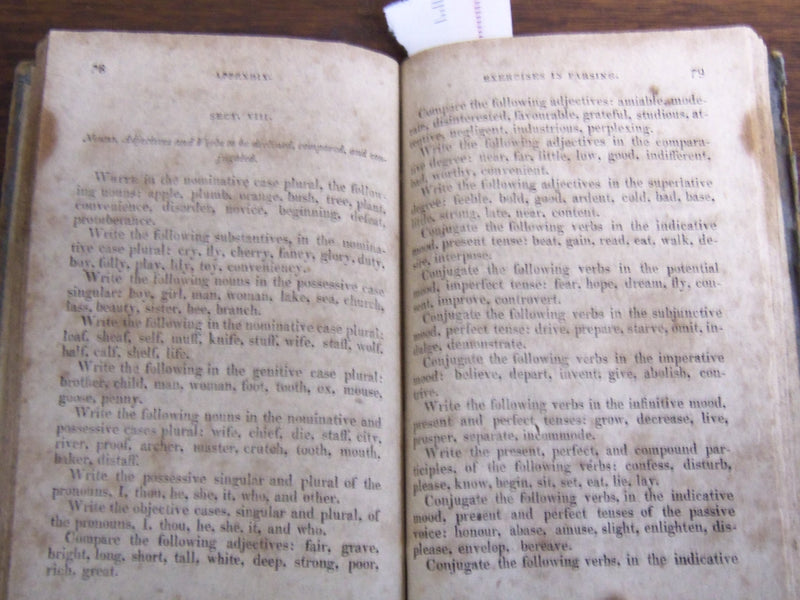 78
APPENDIX.
SECT. VIII.
Nouns, Adjectives and Verbs to be declined, compared, and con-
jugated.
WRITE in the nominative case plural, the follow-
ing nouns: apple, plumb, orange, bush, tree, plant,
convenience, disorder, novice, beginning, defeat,
protuberance.
Write the following substantives, in the nomina-
tive case plural: cry, fly, cherry, fancy, glory, duty,
boy, folly, play, lily, toy, conveniency.
Write the following nouns in the possessive case
singular: boy, girl, man, woman, lake, sea, church,
lass, beauty, sister, bee, branch.
Write the following in the nominative case plural:
loaf, sheaf, self, muff, knife, stuff, wife, staff, wolf,
half, calf, shelf, life.
Write the following in the genitive case plural:
brother, child, man, woman, foot, tooth, ox, mouse,
goose, penny.
Write the following nouns in the nominative and
possessive cases plural: wife, chief, die, staff, city,
river, proof, archer, master, crutch, tooth, mouth,
baker, distaff.
Write the possessive singular and plural of the
pronouns, I, thou, he, she, it, who, and other.
Write the objective cases, singular and plural, of
the pronouns, I, thou, he, she, it, and who.
Compare the following adjectives: fair, grave,
bright, long, short, tall, white, deep, strong, poor,
rich, great.
EXERCISES IN PARSING.
79
Compare the following adjectives: amiable, mode-
rate, disinterested, favourable, grateful, studious, at-
tentive, negligent, industrious, perplexing.
Write the following adjectives in the compara-
tive degree: near, far, little, low, good, indifferent,
bad, worthy, convenient.
Write the following adjectives in the superlative
degree: feeble, bold, good, ardent, cold, bad, base,
little, strong, late, near, content.
Conjugate the following verbs in the indicative
mood, present tense: beat, gain, read, eat, walk, de-
sire, interpose.
Conjugate the following verbs in the potential
mood, imperfect tense: fear, hope, dream, fly, con-
sent, improve, controvert.
Conjugate the following verbs in the subjunctive
mood, perfect tense: drive, prepare, starve, omit, in-
dulge, demonstrate.
Conjugate the following verbs in the imperative
mood: believe, depart, invent, give, abolish, con-
trive.
Write the following verbs in the infinitive mood,
present and perfect tenses: grow, decrease, live,
prosper, separate, incommode.
Write the present, perfect, and compound par-
ticiples, of the following verbs: confess, disturb,
please, know, begin, sit, set, eat, lie, lay.
Conjugate the following verbs, in the indicative
mood, present and perfect tenses of the passive
voice: honour, abase, amuse, slight, enlighten, dis-
please, envelop, bereave.
Conjugate the following verbs, in the indicative